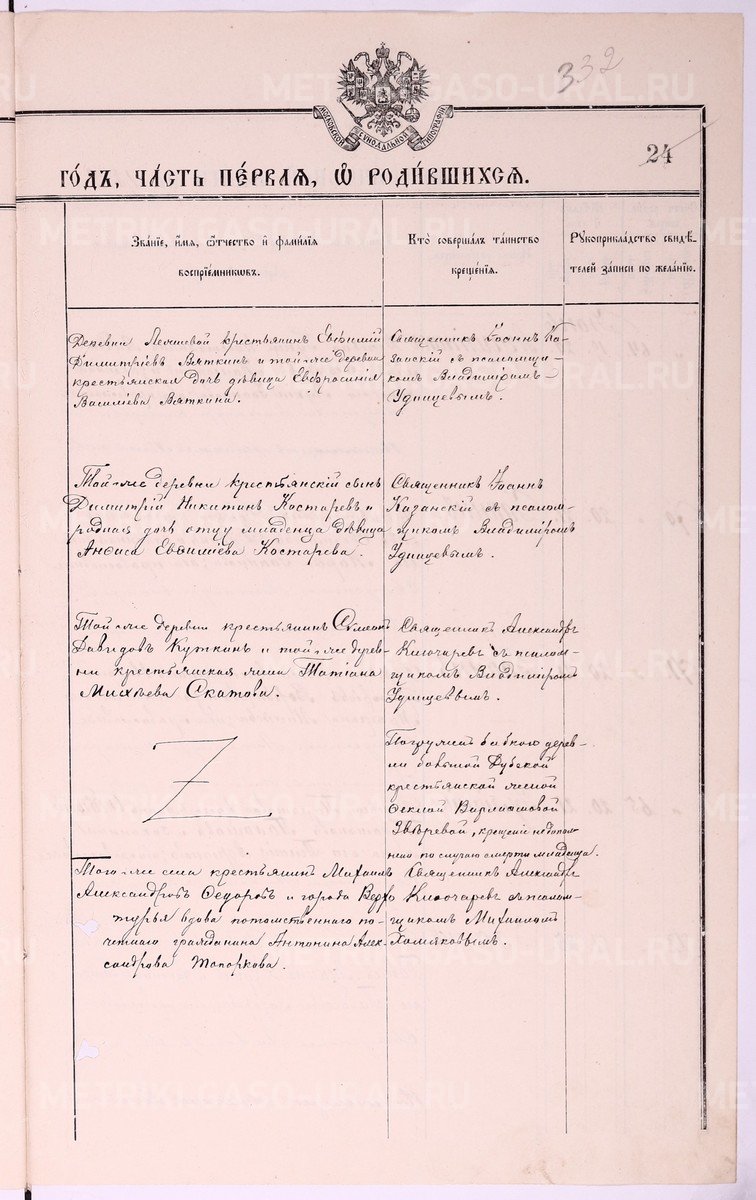 332
МОСКОВСКОЙ СѴНОДАЛЬНОЙ ТИПОГРАФІИ
24
ГО́ДЪ, ЧА́СТЬ ПЕ́РВАЯ, Ѽ РОДИ́ВШИХСЯ.
Зва́нїе, и҆́мя, ѻ҆́тчество и҆ фами́лїя
воспрїе́мникѡвъ.
Кто̀ соверша́лъ та́инство
креще́нїя.
Рꙋкоприкла́дство свидѣ́-
телей за́писи по жела́нїю.
Деревни крестьянинъ Евфимій
Димитріевъ Вяткинъ и той-же деревни
крестьянская дочь дѣвица Евфросинія
Василіева Вяткина.
Священникъ Іоаннъ Ка-
занскій съ псаломщи-
комъ Владиміромъ
Удинцевымъ.
Той-же деревни крестьянскій сынъ
Димитрій Никитинъ Костаревъ и
родная дочь отцу младенца дѣвица
Анѳиса Евфиміева Костарева.
Священникъ Іоаннъ
Казанскій съ псалом-
щикомъ Владиміромъ
Удинцевымъ.
Той-же деревни крестьянинъ Симеонъ
Давидовъ Куткинъ и той-же дерев-
ни крестьянская жена Татіана
Скатова.
Священникъ Александръ
Ключаревъ съ псалом-
щикомъ Владиміромъ
Удинцевымъ.
Погружалъ бабкою дерев-
ни Дубской
крестьянской женой
Ѳеклой Варлаамовой
Звѣревой, крещеніе недопол-
нено по случаю смерти младенца.
Того-же села крестьянинъ Михаилъ
Александровъ Ѳедоровъ и города Верхо-
турья вдова потомственнаго по-
четнаго гражданина Антонина Алек-
сандрова Топоркова.
Священникъ Александръ
Ключаревъ съ псалом-
щикомъ Михаиломъ
Хомяковымъ.